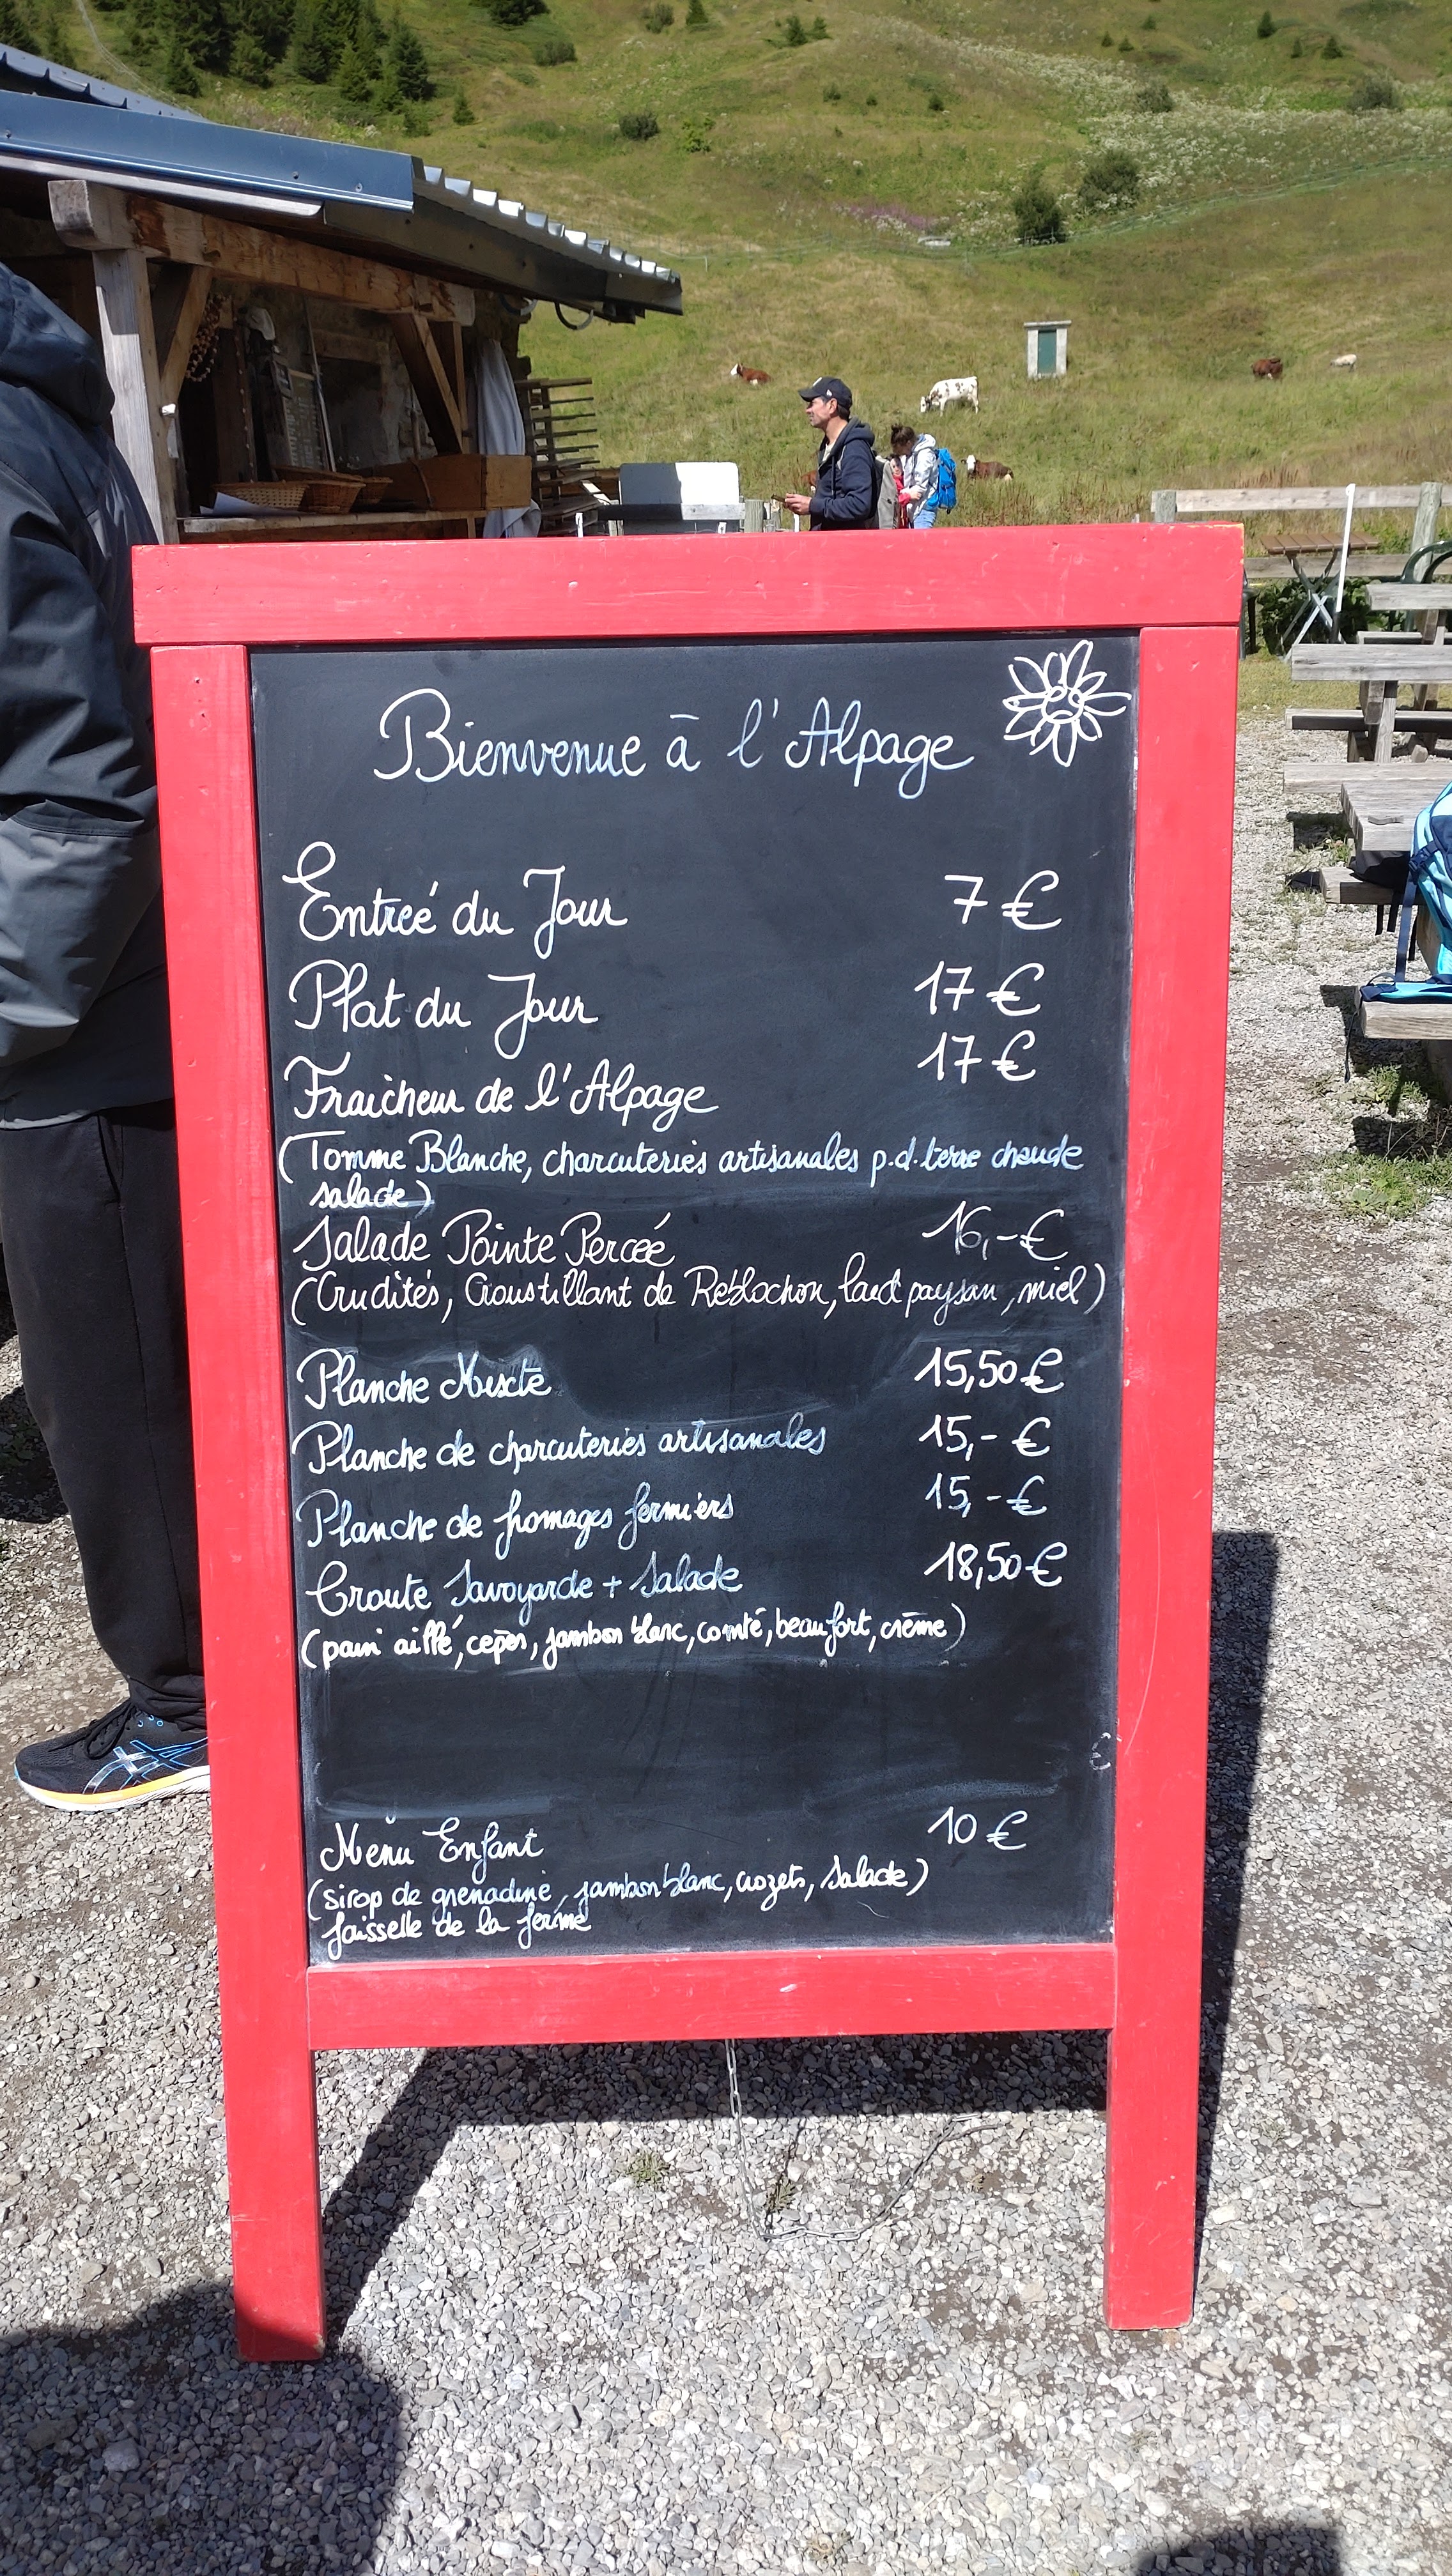 Bienvenue à l'Alpage
Entrée du Jour 7 €
Plat du Jour 17 €
Fraicheur de l'Alpage 17 €
(Tomme Blanche, charcuteries artisanales p.d.terre chaude
salade)
Salade Pointe Percée 16,-€
(Crudités, Croustillant de Reblochon, lard paysan, miel)
Planche Mixte 15,50€
Planche de charcuteries artisanales 15,- €
Planche de fromages fermiers 15,-€
Croute Savoyarde + Salade 18,50€
(pain aillé, cèpes, jambon blanc, comté, beaufort, crème)
Menu Enfant 10 €
(sirop de grenadine, jambon blanc, crozets, salade)
faisselle de la ferme